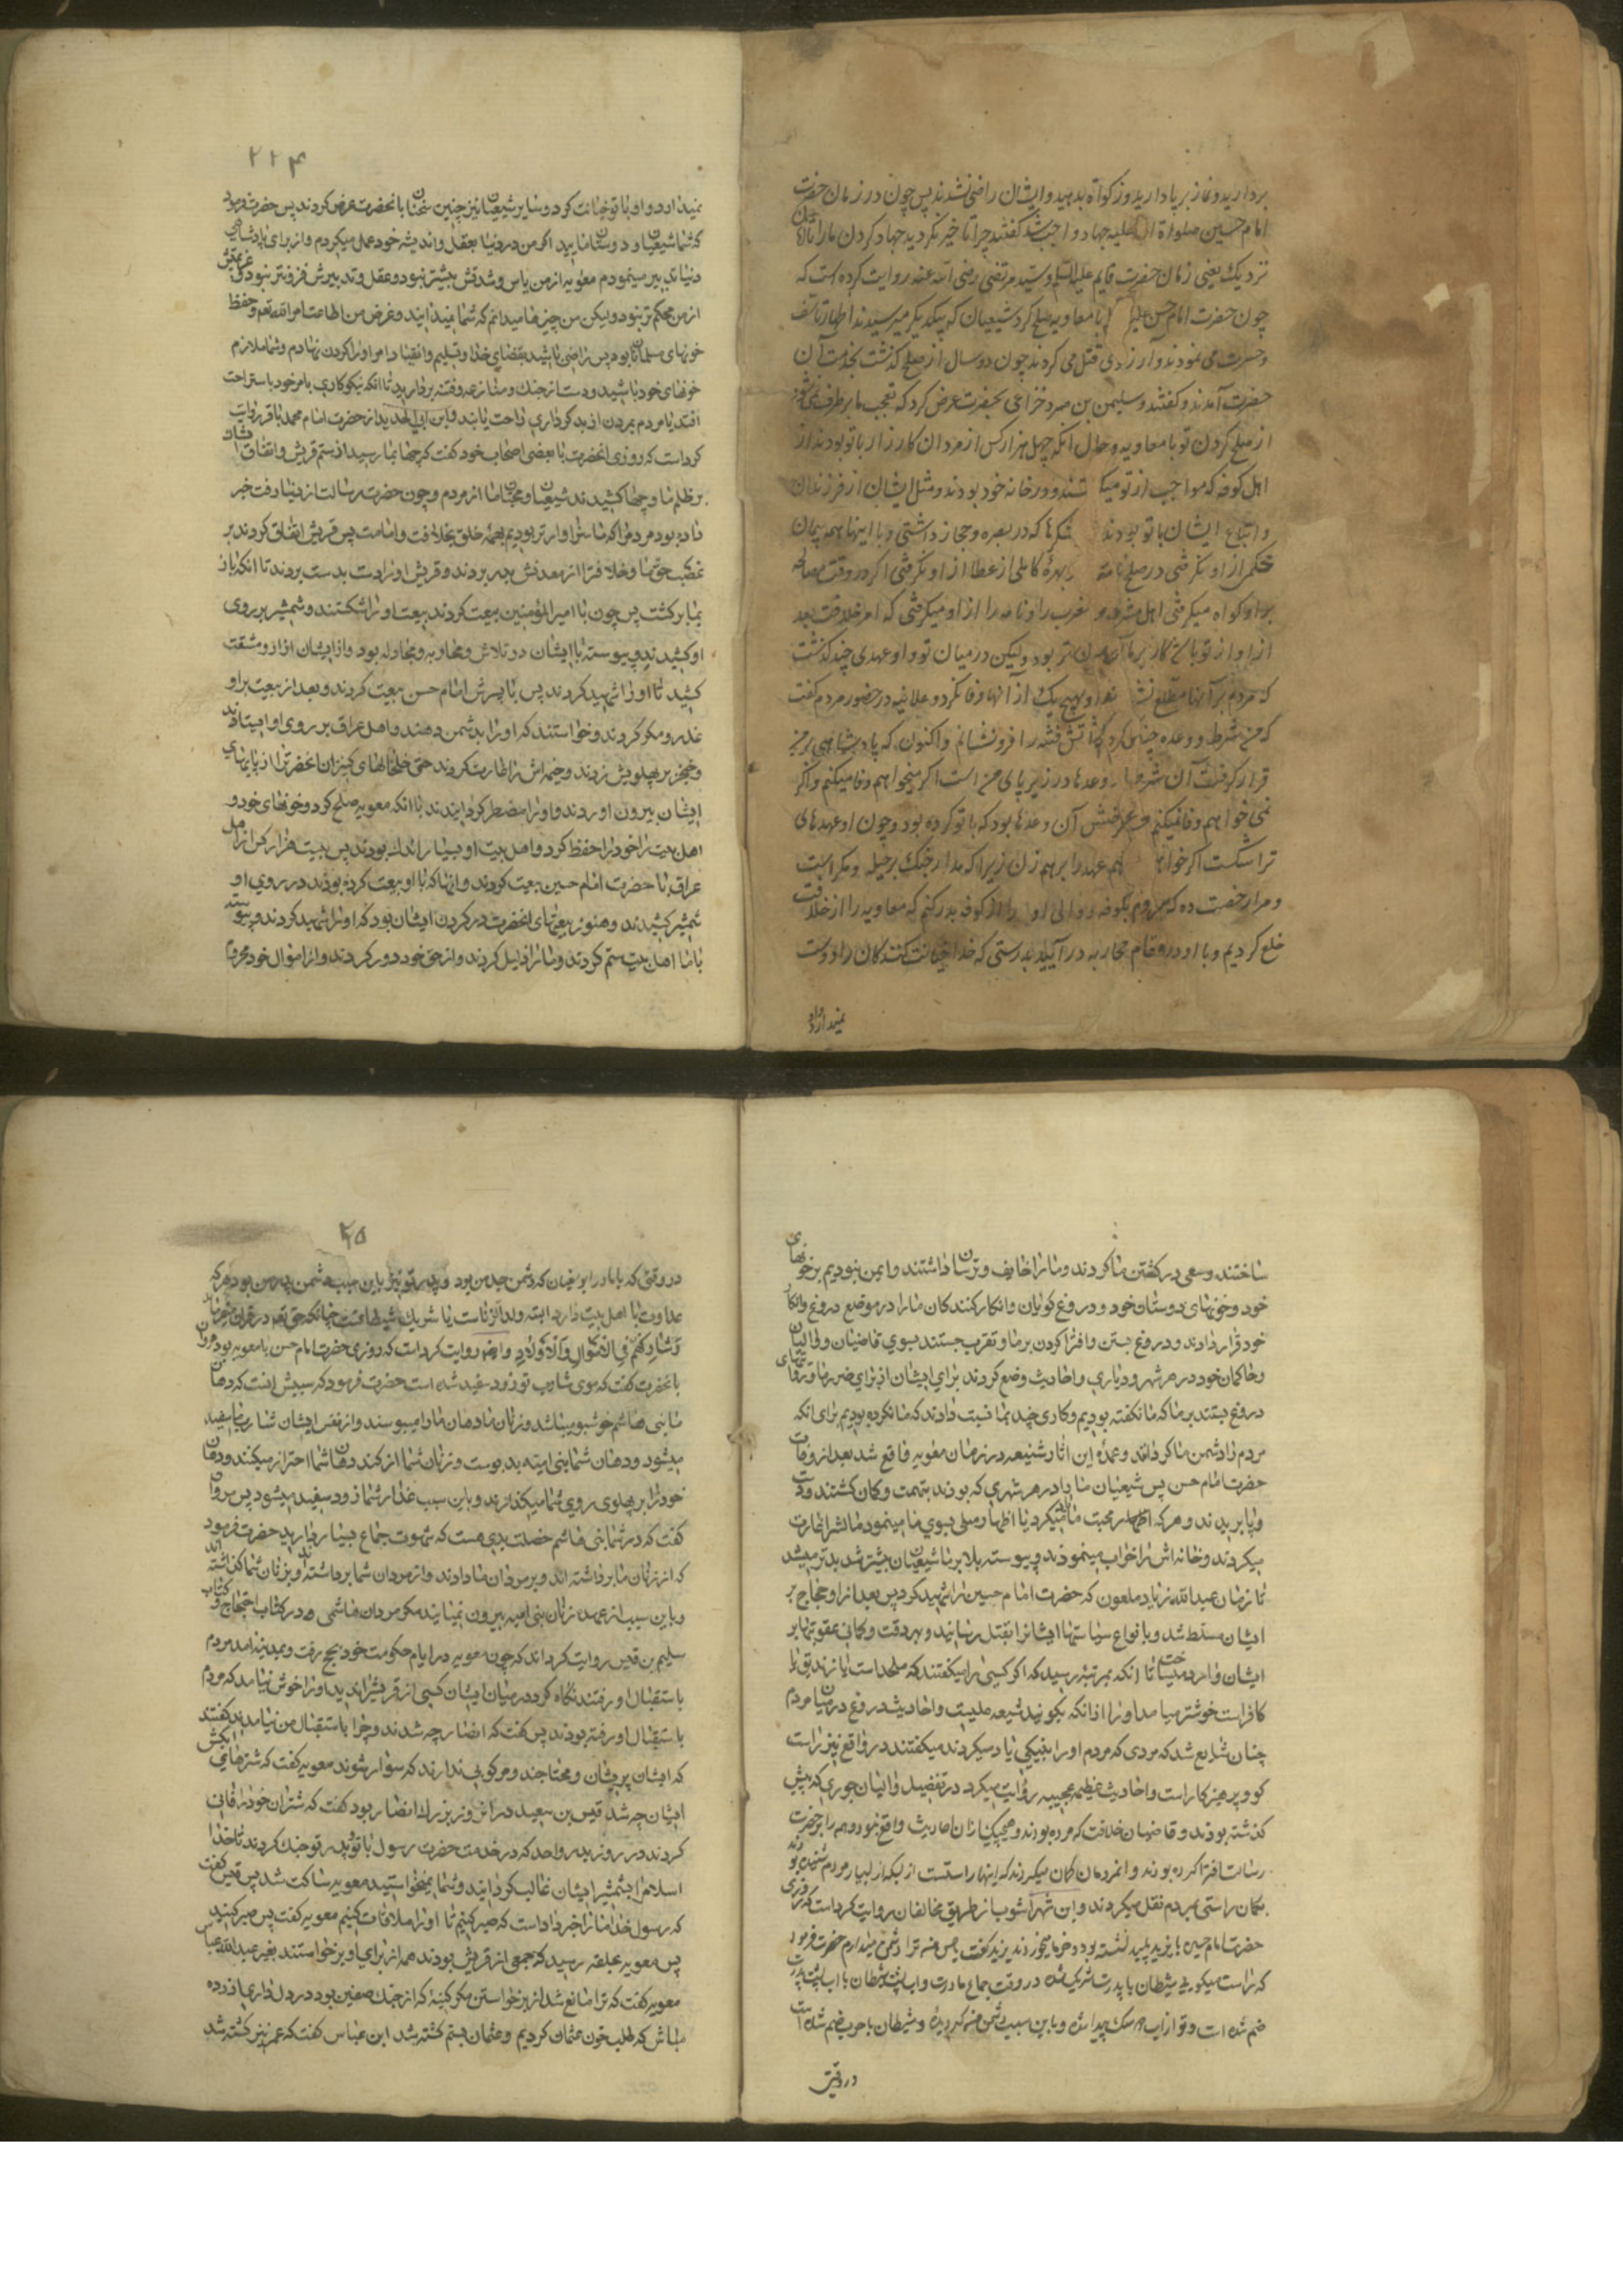 بردارید و نماز برپا دارید و زکوة بدهید و ایشان راضی نشدند پس چون در زمان حضرت
امام حسین صلواة الله علیه جهاد واجب شد گفتند چرا تاخیر نکردید جهاد کردن ما را تا زمان
نزدیک یعنی زمان حضرت قایم علیه السلم و سید مرتضی رضی الله عنه روایت کرده است که
چون حضرت امام حسن علیه با معاویه صلح کرد شیعیان که بیکدیگر میرسیدند اظهار تاسف
و حسرت می نمودند و آرزوی قتل می کردند چون دو سال از صلح گذشت بخدمت آن
حضرت آمدند و گفتند و سلیمن بن صرد خزاعی بحضرت عرض کرد که تعجب ما برطرف نمی شود
از صلح کردن تو با معاویه و حال آنکه چهل هزار کس از مردان کارزار با تو بودند از
اهل کوفه که مواجب از تو میگرفتند و در خانه خود بودند و مثل ایشان از فرزندان
و اتباع ایشان با تو بودند که در بصره و حجاز داشتی و با اینها همه پیمان
محکم از او نگرفتی در صلح نامه بهره کاملی از عطا از او نگرفتی اگر در وقت مصالحه
بر او گواه میگرفتی اهل مشرق و مغرب را و نامه را از او میگرفتی که امر خلافت بعد
از او از تو باشد کار بر ما آسان تر بود و لیکن در میان تو و او عهدی چند گذشت
که مردم بر آنها مطلع نشدند و او بهیچ یک از آنها وفا نکرد و علانیه در حضور مردم گفت
که من شرط و وعده چنان کردم که آتش فتنه را فرونشانم و اکنون که پادشاهی بر من
قرار گرفت آن شرطها و وعدها در زیر پای من است اگر میخواهم وفا میکنم و اگر
نمی خواهم وفا نمیکنم و غرضش آن وعدها بود که با تو کرده بود و چون او عهدهای
ترا شکست اگر خواهی هم عهد را برهم زن زیرا که مدار جنگ بر حیله و مکر است
و مرا رخصت ده که بروم بکوفه و والی او را از کوفه بدر کنم که معاویه را از خلافت
خلع کردیم و با او در مقام محاربه در آئید بدرستی که خدا خیانت کنندگان را دوست
نمیدارد
۲۲۴
نمیدارد و او با تو خیانت کرد و سایر شیعیان نیز چنین سخنان بانحضرت عرض کردند پس حضرت فرمود
که شما شیعیان و دوستان مایید اگر من در دنیا بعقل و اندیشه خود عمل میکردم و از برای پادشاهی
دنیا تدبیر مینمودم معویه از من باس و شدتش بیشتر نبود و عقل و تدبیرش فزونتر نبود و عزمش
از من محکم تر نبود و لیکن من چیزها میدانم که شما نمیدانید و غرض من اطاعت امر الله تعم و حفظ
خونهای مسلمانان بود پس راضی باشید بقضای خدا و تسلیم و انقیاد امر او را گردن نهادم و شما ملازم
خونهای خود باشید و دست از جنک و منازعه و فتنه بردارید تا آنکه نیکوکاری بامر خود باستراحت
افتد یا مردم بمردن از بدکرداری راحت یابند و ابن ابی الحدید از حضرت امام محمد باقر روایت
کرده است که روزی انحضرت با بعضی اصحاب خود گفت که چها بما رسید از ستم قریش و اتفاق ایشان
بر ظلم ما و چها کشیدند شیعیان و محبان ما از مردم و چون حضرت رسالت از دنیا رفت خبر
داده بود مردم را که ما سزاوارتر بودیم بهمه خلق بخلافت و امامت پس قریش اتفاق کردند بر
غصب حق ما و خلافت را از معدنش بدر بردند و قریش او را دست بدست بردند تا انکه باز
بما برگشت پس چون با امیر المؤمنین بیعت کردند بیعت او را شکستند و شمشیر بر روی
او کشیدند و پیوسته با ایشان در تلاش و محاربه و مجادله بود و از ایشان ازار و مشقت
کشید تا او را شهید کردند پس با پسرش امام حسن بیعت کردند و بعد از بیعت با او
غدر و مکر کردند و خواستند که او را بدشمن دهند و اهل عراق بر روی او ایستادند
و خنجر بر پهلویش زدند و خیمه اش را غارت کردند حتی خلخالهای کنیزان انحضرت را از پاهای
ایشان بیرون اوردند و او را مضطر گردانیدند تا انکه با معویه صلح کرد و خونهای خود و
اهل بیت خود را حفظ کرد و اهل بیت او بسیار اندک بودند پس بیست هزار کس از اهل
عراق با حضرت امام حسین بیعت کردند و انها که با او بیعت کرده بودند بر روی او
شمشیر کشیدند و هنوز بیعتهای انحضرت در گردن ایشان بود که او را شهید کردند و پیوسته
با ما اهل بیت ستم کردند و ما را ذلیل کردند و از حق خود دور کردند و از اموال خود محروم
ساختند و سعی در کشتن ما کردند و ما را خایف و ترسان داشتند و ایمن نبودیم بر خونهای
خود و خونهای دوستان خود و دروغ گویان و انکار کنندگان ما را در موضع دروغ و انکار
خود قرار دادند و دروغ بستن و افترا کردن بر ما و تقرب جستند بسوی قاضیان و والیان
و حاکمان خود در هر شهر و دیاری و احادیث وضع کردند برای ایشان از برای ضرر ما و روایتهای
دروغ بستند بر ما که ما نگفته بودیم و کاری چند بما نسبت دادند که ما نکرده بودیم برای انکه
مردم را دشمن ما گردانند و عمده این اثار شنیعه در زمان معویه واقع شد بعد از وفات
حضرت امام حسن پس شیعیان ما را در هر شهری که بودند بتهمت و گمان کشتند و دست
و پا بریدند و هر که اظهار محبت ما میکرد یا اظهار میلی بسوی ما مینمود مالش را غارت
میکردند و خانه اش را خراب مینمودند و پیوسته بلا بر ما شیعیان بیشتر شد و بدتر میشد
تا زمان عبید الله زیاد ملعون که حضرت امام حسین را شهید کرد پس بعد از او حجاج بر
ایشان مسلط شد و بانواع سیاستها ایشانرا بقتل رسانید و بهر دقت و گمانی عقوبتها بر
ایشان وارد میساخت تا انکه بمرتبه رسید که اگر کسی را میگفتند که ملحد است یا زندیق یا
کافر است خوشتر میامد او را از انکه بگویند شیعه علیست و احادیث دروغ در میان مردم
چنان شایع شد که مردی که مردم او را بنیکی یاد میکردند میگفتند در واقع نیز راست
گو و پرهیزکار است و احادیث عظیمه عجیبه روایت میکرد در تفضیل والیان جوری که پیش
گذشته بودند و قاضیان خلافت که مرده بودند و هیچیک از ان احادیث واقع نبود و همه را بر حضرت
رسالت افترا کرده بودند و انمردمان گمان میکردند که اینها راستست از بسکه از بسیار مردم شنیده بودند
بگمان راستی بمردم نقل میکردند و ابن شهراشوب از طریق مخالفان روایت کرده است که روزی
حضرت امام حسین با یزید پلید نشسته بود و خرما میخوردند یزید گفت یا حسن من ترا دشمن میدارم حضرت فرمود
که راست میگوئی شیطان با پدرت شریک شد در وقت جماع مادرت و اب شیطان با اب پدرت
ضم شده است و تو از اب هر یک پیدا شده و باین سبب دشمن من گردیده و شیطان با حرب ضم شده است
در وقتی
۲۲۵
در وقتی که با مادر ابو سفیان که دشمن جد من بود و پدر تو نیز باین سبب دشمن پدر من بود هر که
عداوت ما اهل بیت دارد البته ولد الزناست یا شریک شیطانست چنانکه حق تعم در قران میفرماید
وَشَارِكْهُمْ فِي الْأَمْوَالِ وَالْأَوْلَادِ و ایضا روایت کرده است که روزی حضرت امام حسن با معویه بود مروان
بانحضرت گفت که موی شارب تو زود سفید شده است حضرت فرمود که سببش انست که دهان
ما بنی هاشم خوشبو میباشد و زنان ما دهان ما را میبوسند و از نفس ایشان شارب ما سفید
میشود و دهان شما بنی امیه بد بوست و زنان شما از گند دهان شما احتراز میکنند و دهان
خود را بر پهلوی روی شما میگذارند و باین سبب عذار شما زود سفید میشود پس مروان
گفت که در شما بنی هاشم خصلت بدی هست که شهوت جماع بسیار دارید حضرت فرمود
که از زنان ما برداشته اند و بر مردان ما دادند و از مردان شما برداشته اند و بزنان شما گذاشته اند
و باین سبب از عهده زنان بنی امیه بیرون نمیایند مگر مردان هاشمی و در کتاب احتجاج و کتاب
سلیم بن قیس روایت کرده اند که چون معویه در ایام حکومت خود بحج رفت و بمدینه امد مردم
باستقبال او رفتند نگاه کرد در میان ایشان کسی از قریش را ندید و او را خوش نیامد که مردم
باستقبال او رفته بودند پس گفت که انصار چه شدند و چرا باستقبال من نیامدند گفتند
که ایشان پریشان و محتاجند و مرکوبی ندارند که سوار شوند معویه گفت که شترهای ابکش
ایشان چه شد قیس بن سعید در انوقت بزرک انصار بود گفت که شتران خود را فانی
کردند در روز بدر و احد که در خدمت حضرت رسول با تو و پدر تو جنک کردند تا خدا
اسلام را بشمشیر ایشان غالب گردانید و شما نمیخواستید معویه ساکت شد پس قیس گفت
که رسول خدا ما را خبر داد است که صبر کنیم تا او را ملاقات کنیم معویه گفت پس صبر کنید
پس معویه بحلقه رسید که جمعی از قریش بودند همه از برای او برخواستند بغیر عبد الله عباس
معویه گفت که ترا مانع شد از برخواستن مگر کینه که از جنک صفین بود در دل داری ازرده
مباش که طلب خون عثمان کردیم و عثمان بستم کشته شد ابن عباس گفت که عمر نیز کشته شد